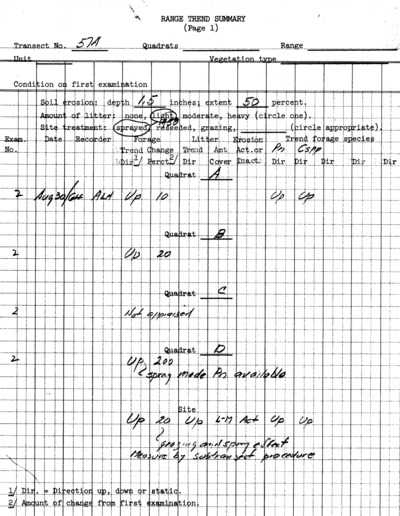 RANGE TREND SUMMARY
(Page 1)
Transect No. 57A Quadrats Range
Unit Vegetation type
Condition on first examination
Soil erosion: depth 1.5 inches; extent 50 percent.
Amount of litter: none, light, moderate, heavy (circle one).
1950
Site treatment: sprayed, reseeded, grazing, (circle appropriate).
Exam. Date Recorder Forage Litter Erosion Trend forage species
No. Trend Change Trend Amt Act.or Pn Cspp
Dir 1/ Perct 2/ Dir Cover Inact. Dir Dir Dir Dir Dir
Quadrat A
2 Aug 30/ ALH Up 10 Up Up
Quadrat B
2 Up 20
Quadrat C
2 Not appraised
Quadrat D
2 Up 200
spray made Pn available
Site
Up 20 Up L-M Act Up Up
grazing and spray effect
Measure by subtransect procedure
1/ Dir. = Direction up, down or static.
2/ Amount of change from first examination.